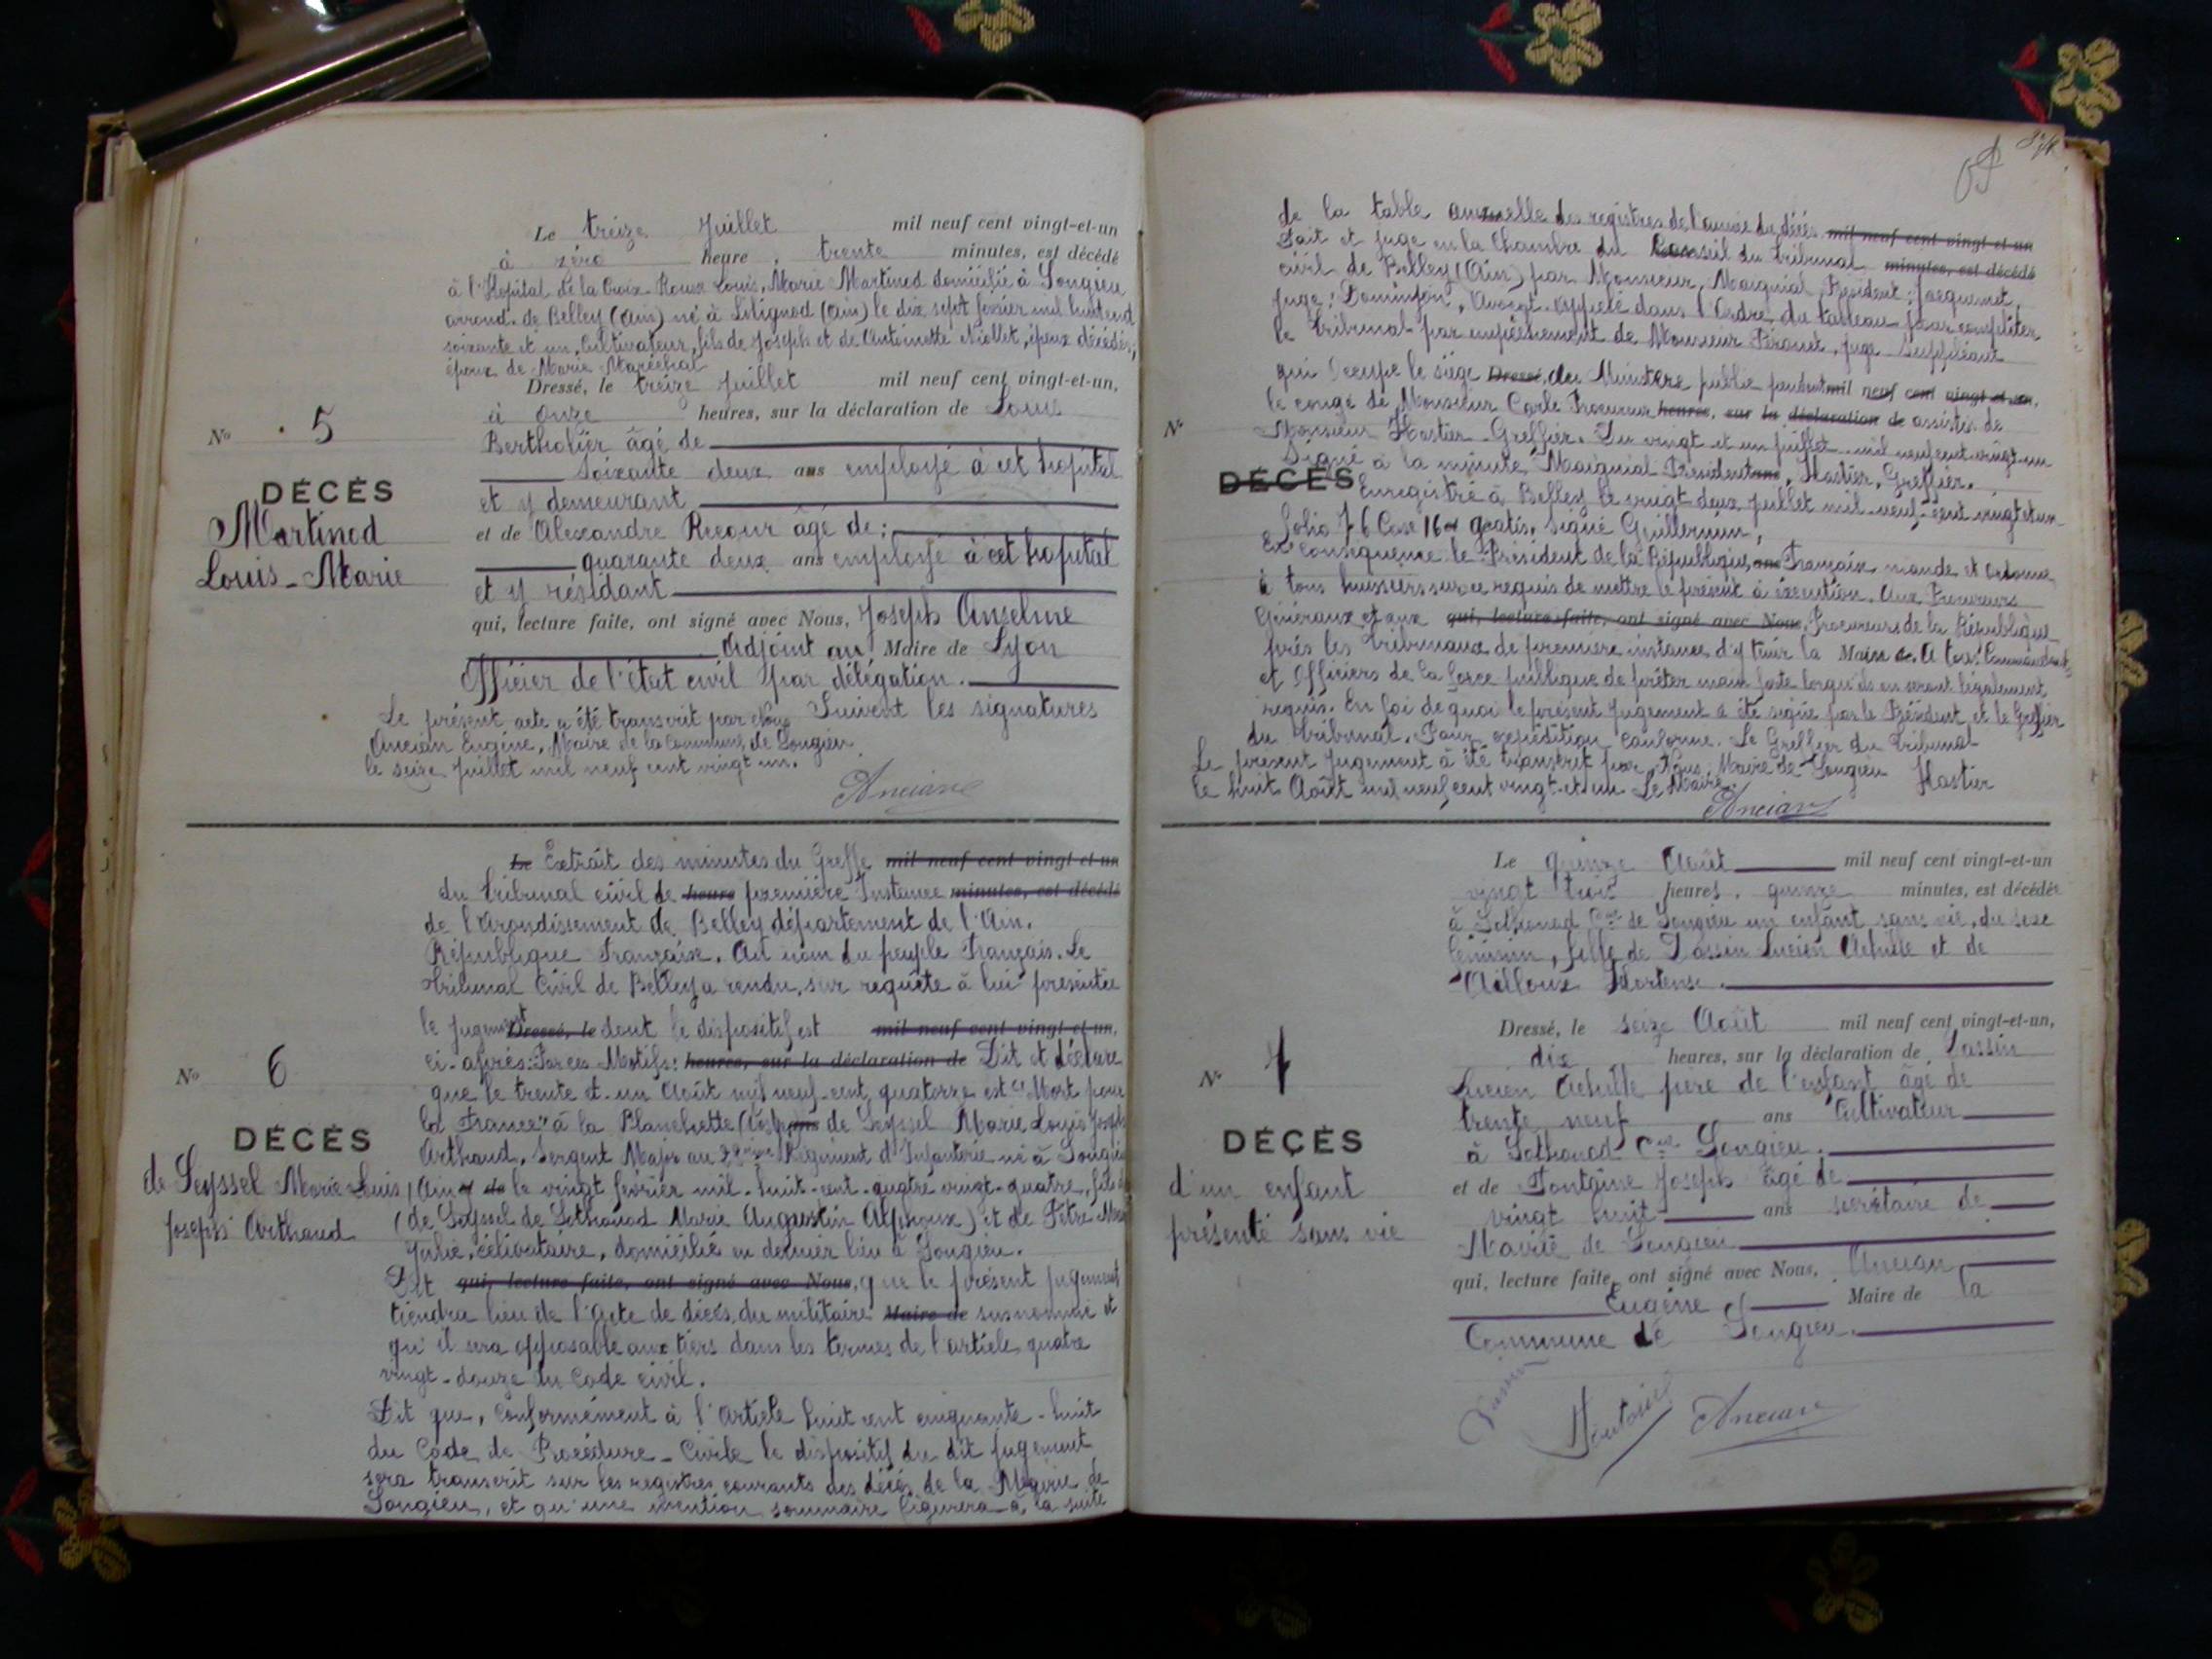 Le treize Juillet mil neuf cent vingt-et-un
à zéro heure, trente minutes, est décédé
à l'Hopital de la Croix-Rousse Louis, Marie Martinod domicilié à Songieu
arrond. de Belley (Ain) né à Lilignod (Ain) le dix sept février mil huit cent
soixante et un, Cultivateur, fils de Joseph et de Antoinette Niollet, époux décédés,
époux de Marie Maréchal
Dressé, le treize Juillet mil neuf cent vingt-et-un,
à onze heures, sur la déclaration de Louis
Bertholier âgé de
soixante deux ans employé à cet hopital
et y demeurant
et de Alexandre Recour âgé de :
quarante deux ans employé à cet hopital
et y résidant
qui, lecture faite, ont signé avec Nous, Joseph Anselme
Adjoint au Maire de Lyon
Officier de l'état civil par délégation.
Suivent les signatures
Le présent acte a été transcrit par Nous
Ancian Eugène, Maire de la Commune de Songieu
le seize Juillet mil neuf cent vingt un.
Ancian
N° 5
DÉCÈS
Martinod
Louis-Marie
Le Extrait des minutes du Greffe mil neuf cent vingt-et-un
du Tribunal civil de heure première Instance minutes, est décédé
de l'Arondissement de Belley département de l'Ain.
République Française. Au nom du peuple Français. Le
Tribunal Civil de Belley a rendu, sur requête à lui présentée
le jugement Dressé, le dont le dispositif est mil neuf cent vingt-et-un,
ci-après: Par ces Motifs: heures, sur la déclaration de Dit et déclare
que le trente et un Août mil neuf-cent quatorze est "Mort pour
la France" à la Planchette ans de Seyssel Marie Louis Joseph
Arthaud, Sergent Major au Régiment d'Infanterie né à Songieu
(Ain) de le vingt février mil-huit-cent-quatre vingt-quatre, fils de
(de Seyssel de Sothonod Marie Augustin Alphonse) et de Fétre Marie
Julie, célibataire, domicilié en dernier lieu à Songieu.
Dit qui, lecture faite, ont signé avec Nous, que le présent jugement
tiendra lieu de l'Acte de décès du militaire Maire de susnommé et
qu'il sera opposable aux tiers dans les termes de l'article quatre
vingt-douze du Code civil.
Dit que, conformément à l'Article huit cent cinquante-huit
du Code de Procédure-Civile le dispositif du dit jugement
sera transcrit sur les registres courants des décès de la Mairie de
Songieu, et qu'une mention sommaire figurera à la suite
N° 6
DÉCÈS
de Seyssel Marie Louis
Joseph Arthaud
de la table annuelle des registres de l'année du décès mil neuf cent vingt-et-un
Fait et jugé en la Chambre du Conseil du Tribunal minutes, est décédé
civil de Belley (Ain) par Monsieur, Maignial, Président; Jacquemet,
Juge; Dominjon, Avocat, appelé dans l'Ordre du tableau pour compléter
le Tribunal par empêchement de Monsieur Féronet, juge suppléant
qui occupe le siège Dressé, du Ministère public pendant mil neuf cent vingt-et-un,
le congé de Monsieur Carle Procureur heures, sur la déclaration de assistés de
Monsieur Hastier-Greffier. Du vingt et un juillet mil neuf cent vingt-un
Signé à la minute: Maignial Président ans, Hastier, Greffier.
Enregistré à Belley le vingt deux juillet mil-neuf-cent vingt et un
Folio 76 Case 16 gratis. Signé Guillermin,
En conséquence le Président de la République ans Française mande et ordonne
à tous huissiers sur ce requis de mettre le présent à éxécution. Aux Procureurs
Généraux et aux qui, lecture faite, ont signé avec Nous, Procureurs de la République
près les Tribunaux de première instance d'y tenir la Main. A tous Commandants
et Officiers de la force publique de prêter main forte lorsqu'ils en seront légalement
requis. En foi de quoi le présent Jugement a été signé par le Président et le Greffier
du Tribunal. Pour expédition conforme. Le Greffier du Tribunal
Le présent Jugement à été transcrit par Nous, Maire de Songieu Hastier
le huit Août mil neuf cent vingt-et-un Le Maire.
Ancian
N°
DÉCÈS
Le quinze Août mil neuf cent vingt-et-un
vingt trois heures, quinze minutes, est décédée
à Sothonod Cne de Songieu un enfant sans vie, du sexe
féminin, fille de Passin Lucien Achille et de
Ailloux Hortense.
Dressé, le seize Août mil neuf cent vingt-et-un,
dix heures, sur la déclaration de Passin
Lucien Achille père de l'enfant âgé de
trente neuf ans Cultivateur
à Sothonod Cne Songieu.
et de Fontaine Joseph âgé de
vingt huit ans secrétaire de
Mairie de Songieu
qui, lecture faite, ont signé avec Nous, Ancian
Eugène Maire de la
Commune de Songieu.
Passin
Fontaine
Ancian
N° 7
DÉCÈS
d'un enfant
présenté sans vie